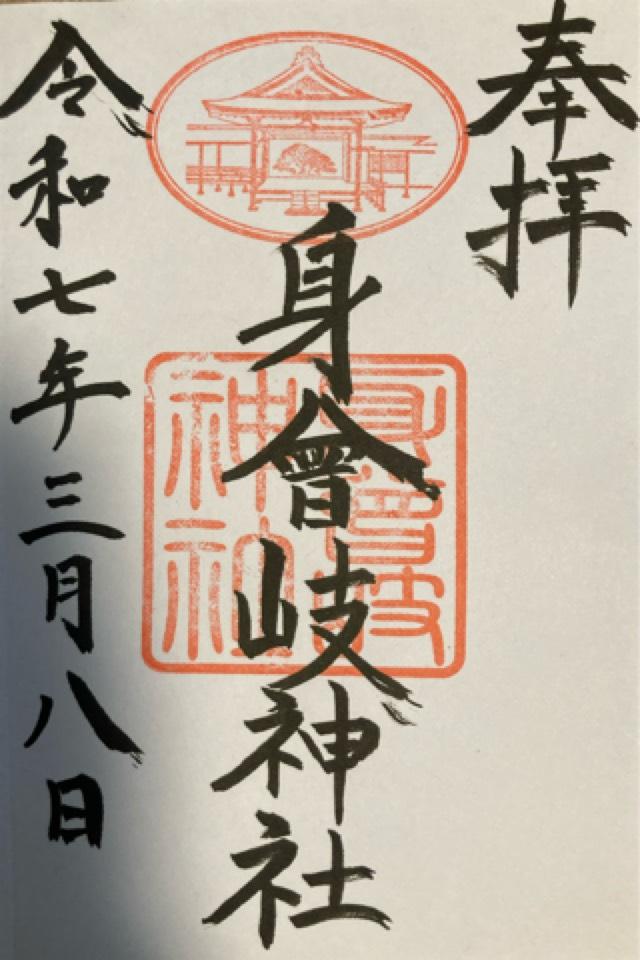 奉拝
身曾岐神社
身曾岐
神社
令和七年三月八日